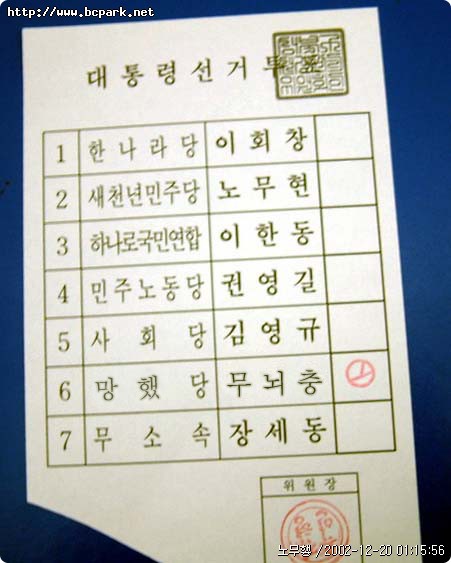 http://www.bcpark.net
대통령선거투표
1 한나라당 이회창
2 새천년민주당 노무현
3 하나로국민연합 이한동
4 민주노동당 권영길
5 사회당 김영규
6 망했당 무뇌충
7 무소속 장세동
위원장
노무행 /2002-12-20 01:15:56